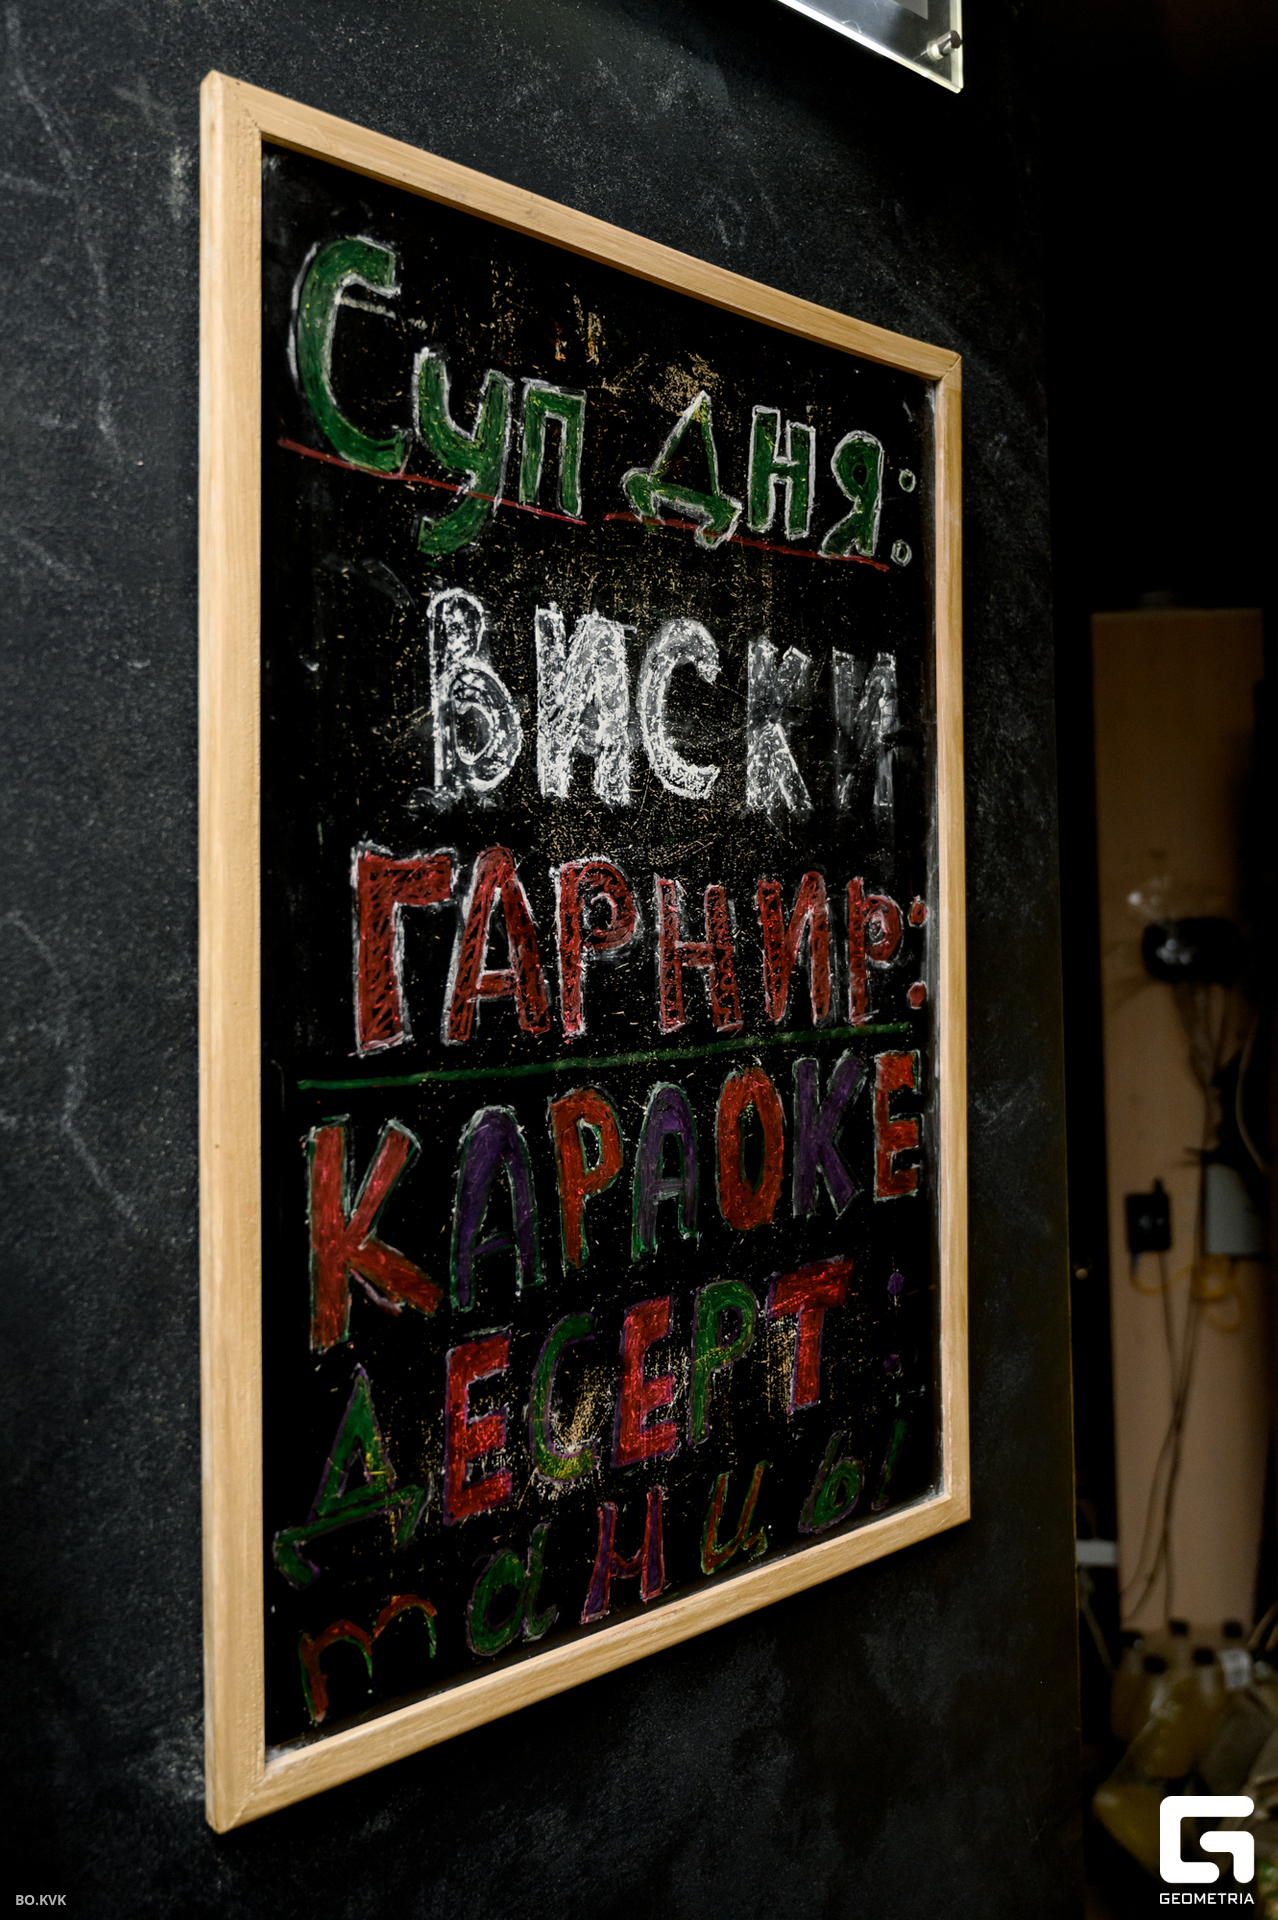 Суп дня:
ВИСКИ
ГАРНИР:
КАРАОКЕ
ДЕСЕРТ:
танцы
BO.KVK
GEOMETRIA